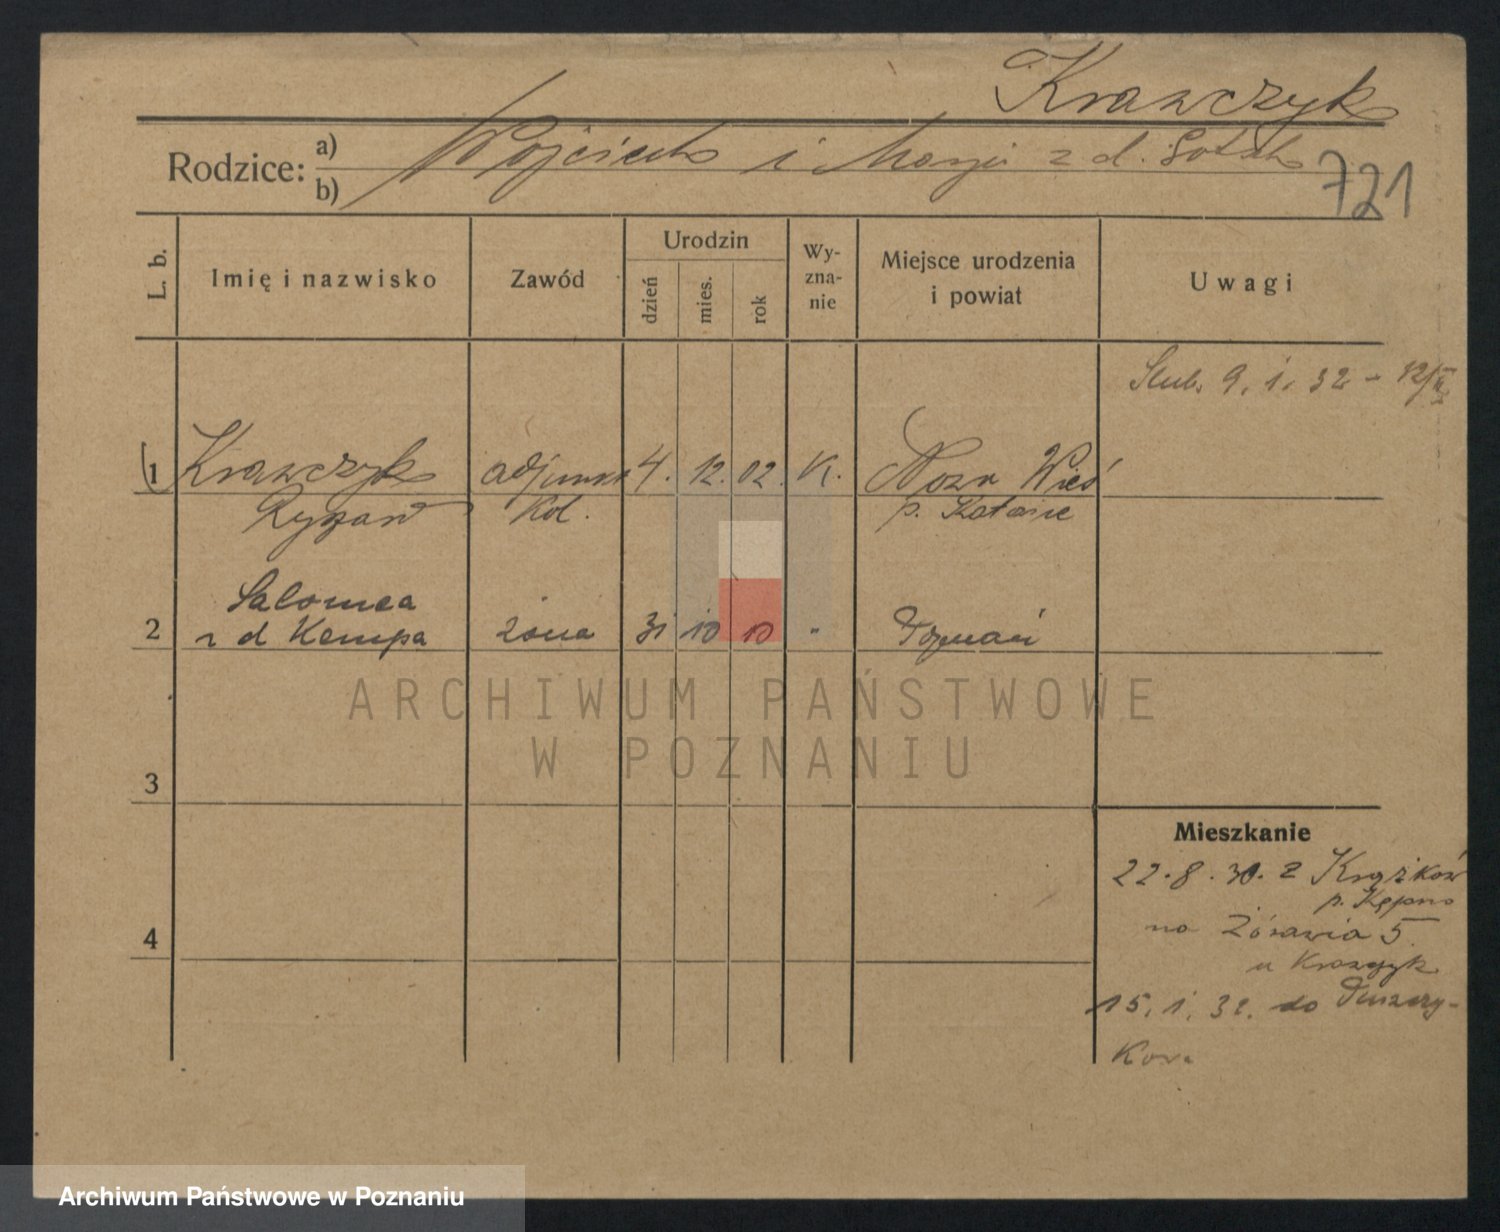 Krawczyk
Rodzice: a) b)
Wojciech i Marja z d.
721
L. b.
Imię i nazwisko
Zawód
Urodzin
dzień
mies.
rok
Wy-
zna-
nie
Miejsce urodzenia
i powiat
Uwagi
9. 1. 32 –
1 Krawczyk adjunkt 4. 12. 02. K. Nowa Wieś
Ryszard kol. p. Katowice
Salomea
2 z d Kempa żona 31 10 10 " Poznań
3
Mieszkanie
22.8.30. z Krążków
p. Kępno
4
na Żórawia 5
u Krawczyk
15. 1. 32. do
ARCHIWUM PAŃSTWOWE
W POZNANIU
Archiwum Państwowe w Poznaniu